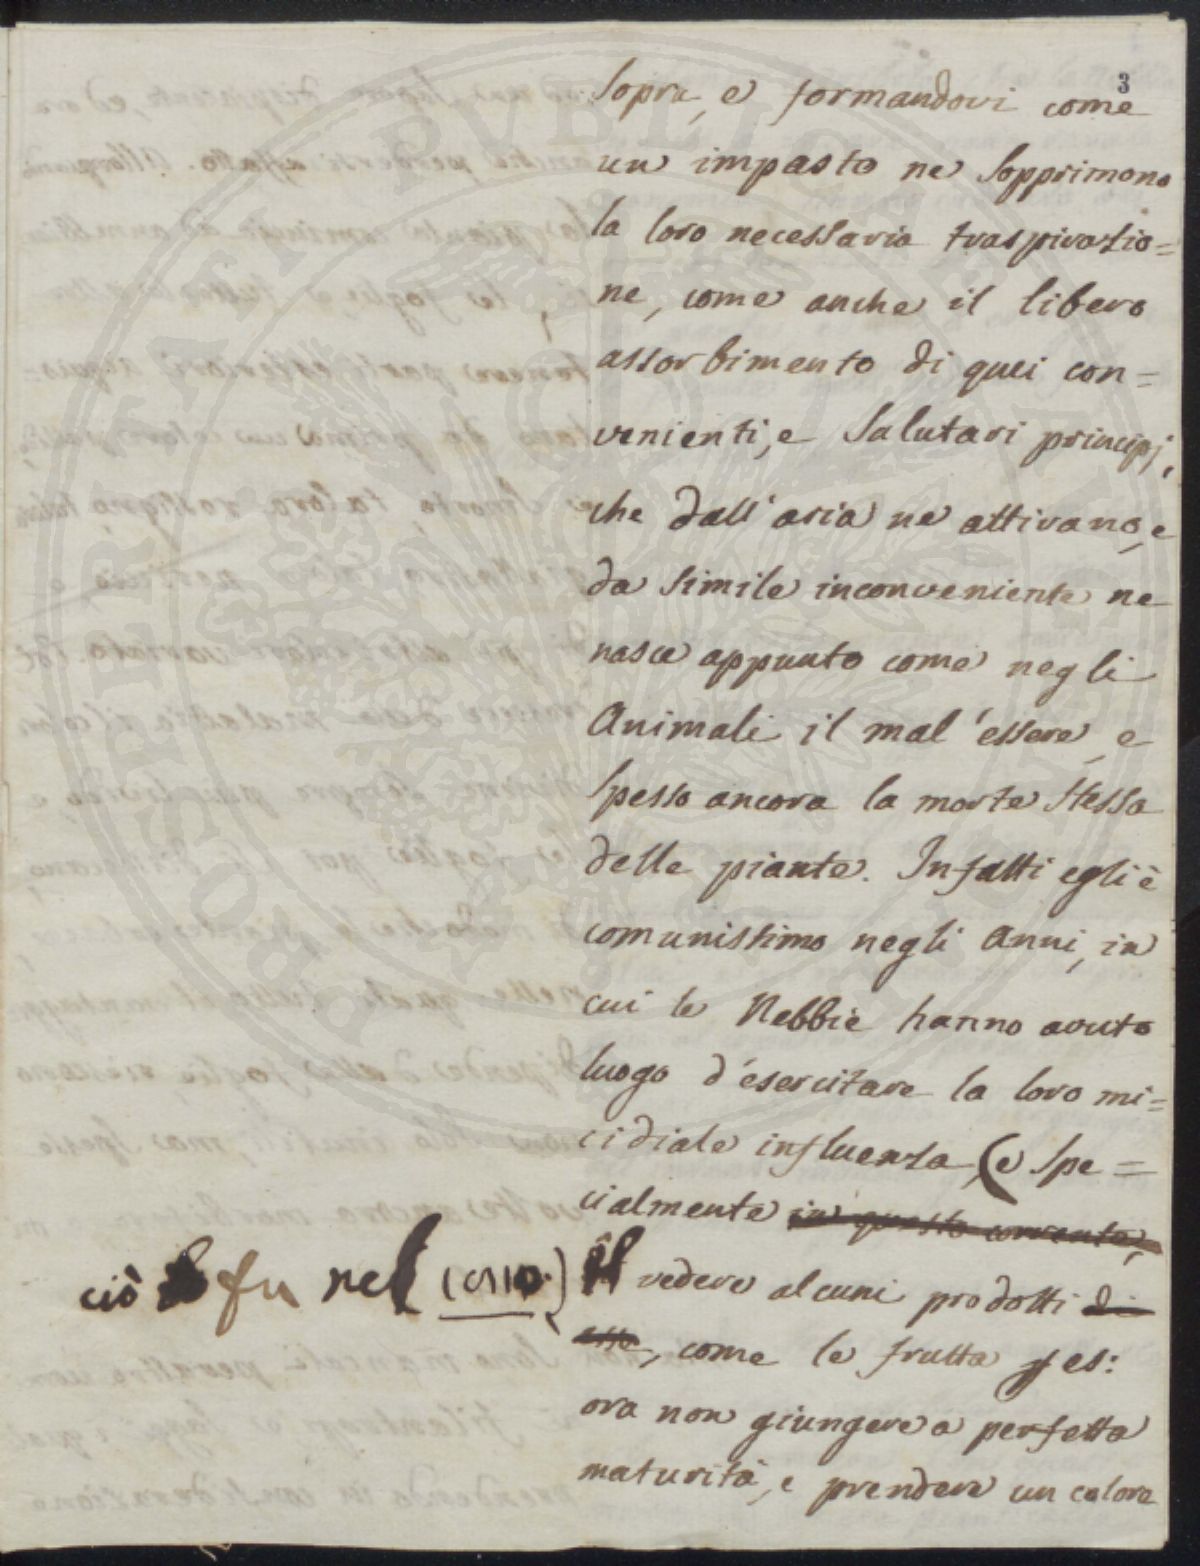 3
Sopra, e formandovi come
un impasto ne Sopprimono
la loro necessaria traspirazio=
ne, come anche il libero
assorbimento di quei con=
venienti, e Salutari principj,
che dall'aria ne attirano, e
da Simile inconveniente ne
nasce appunto come negli
Animali il mal'essere, e
Spesso ancora la morte Stessa
delle piante. Infatti egli è
comunissimo negli Anni, in
cui le Nebbie hanno avuto
luogo d'esercitare la loro mi=
cidiale influenza, (e Spe=
cialmente in questo corrente,
ciò fu nel
il vedere alcuni prodotti di
esse, come le frutta p es:
ora non giungere a perfetta
maturità, e prendere un colore